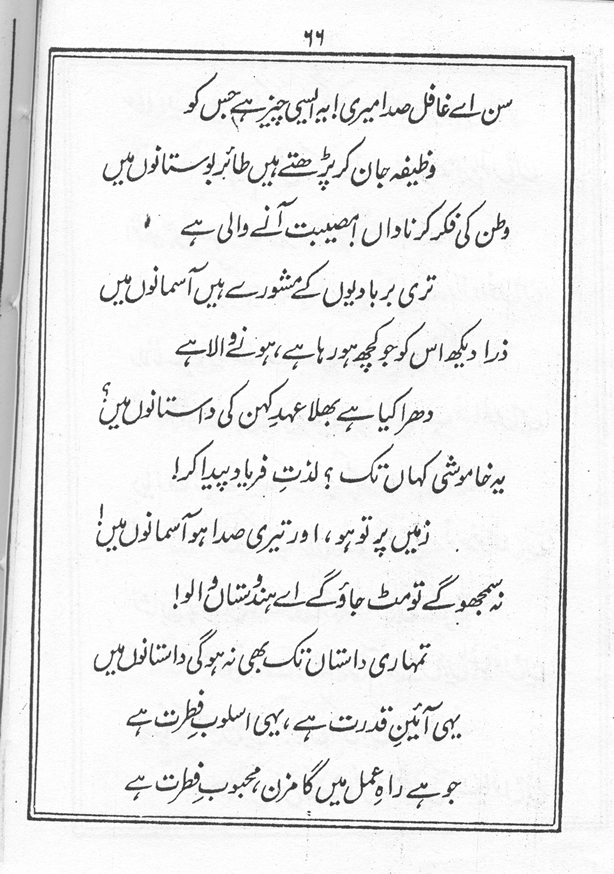 ۶۶
سن اے غافل صدا میری! یہ ایسی چیز ہے جس کو
وظیفہ جان کر پڑھتے ہیں طائر بوستانوں میں
وطن کی فکر کر ناداں! مصیبت آنے والی ہے
تری بربادیوں کے مشورے ہیں آسمانوں میں
ذرا دیکھ اس کو جو کچھ ہو رہا ہے، ہونے والا ہے
دھرا کیا ہے بھلا عہدِ کہن کی داستانوں میں؟
یہ خاموشی کہاں تک؟ لذتِ فریاد پیدا کر!
زمیں پر تو ہو، اور تیری صدا ہو آسمانوں میں!
نہ سمجھو گے تو مٹ جاؤ گے اے ہندوستاں والو!
تمہاری داستاں تک بھی نہ ہوگی داستانوں میں
یہی آئینِ قدرت ہے، یہی اسلوبِ فطرت ہے
جو ہے راہِ عمل میں گامزن، محبوبِ فطرت ہے